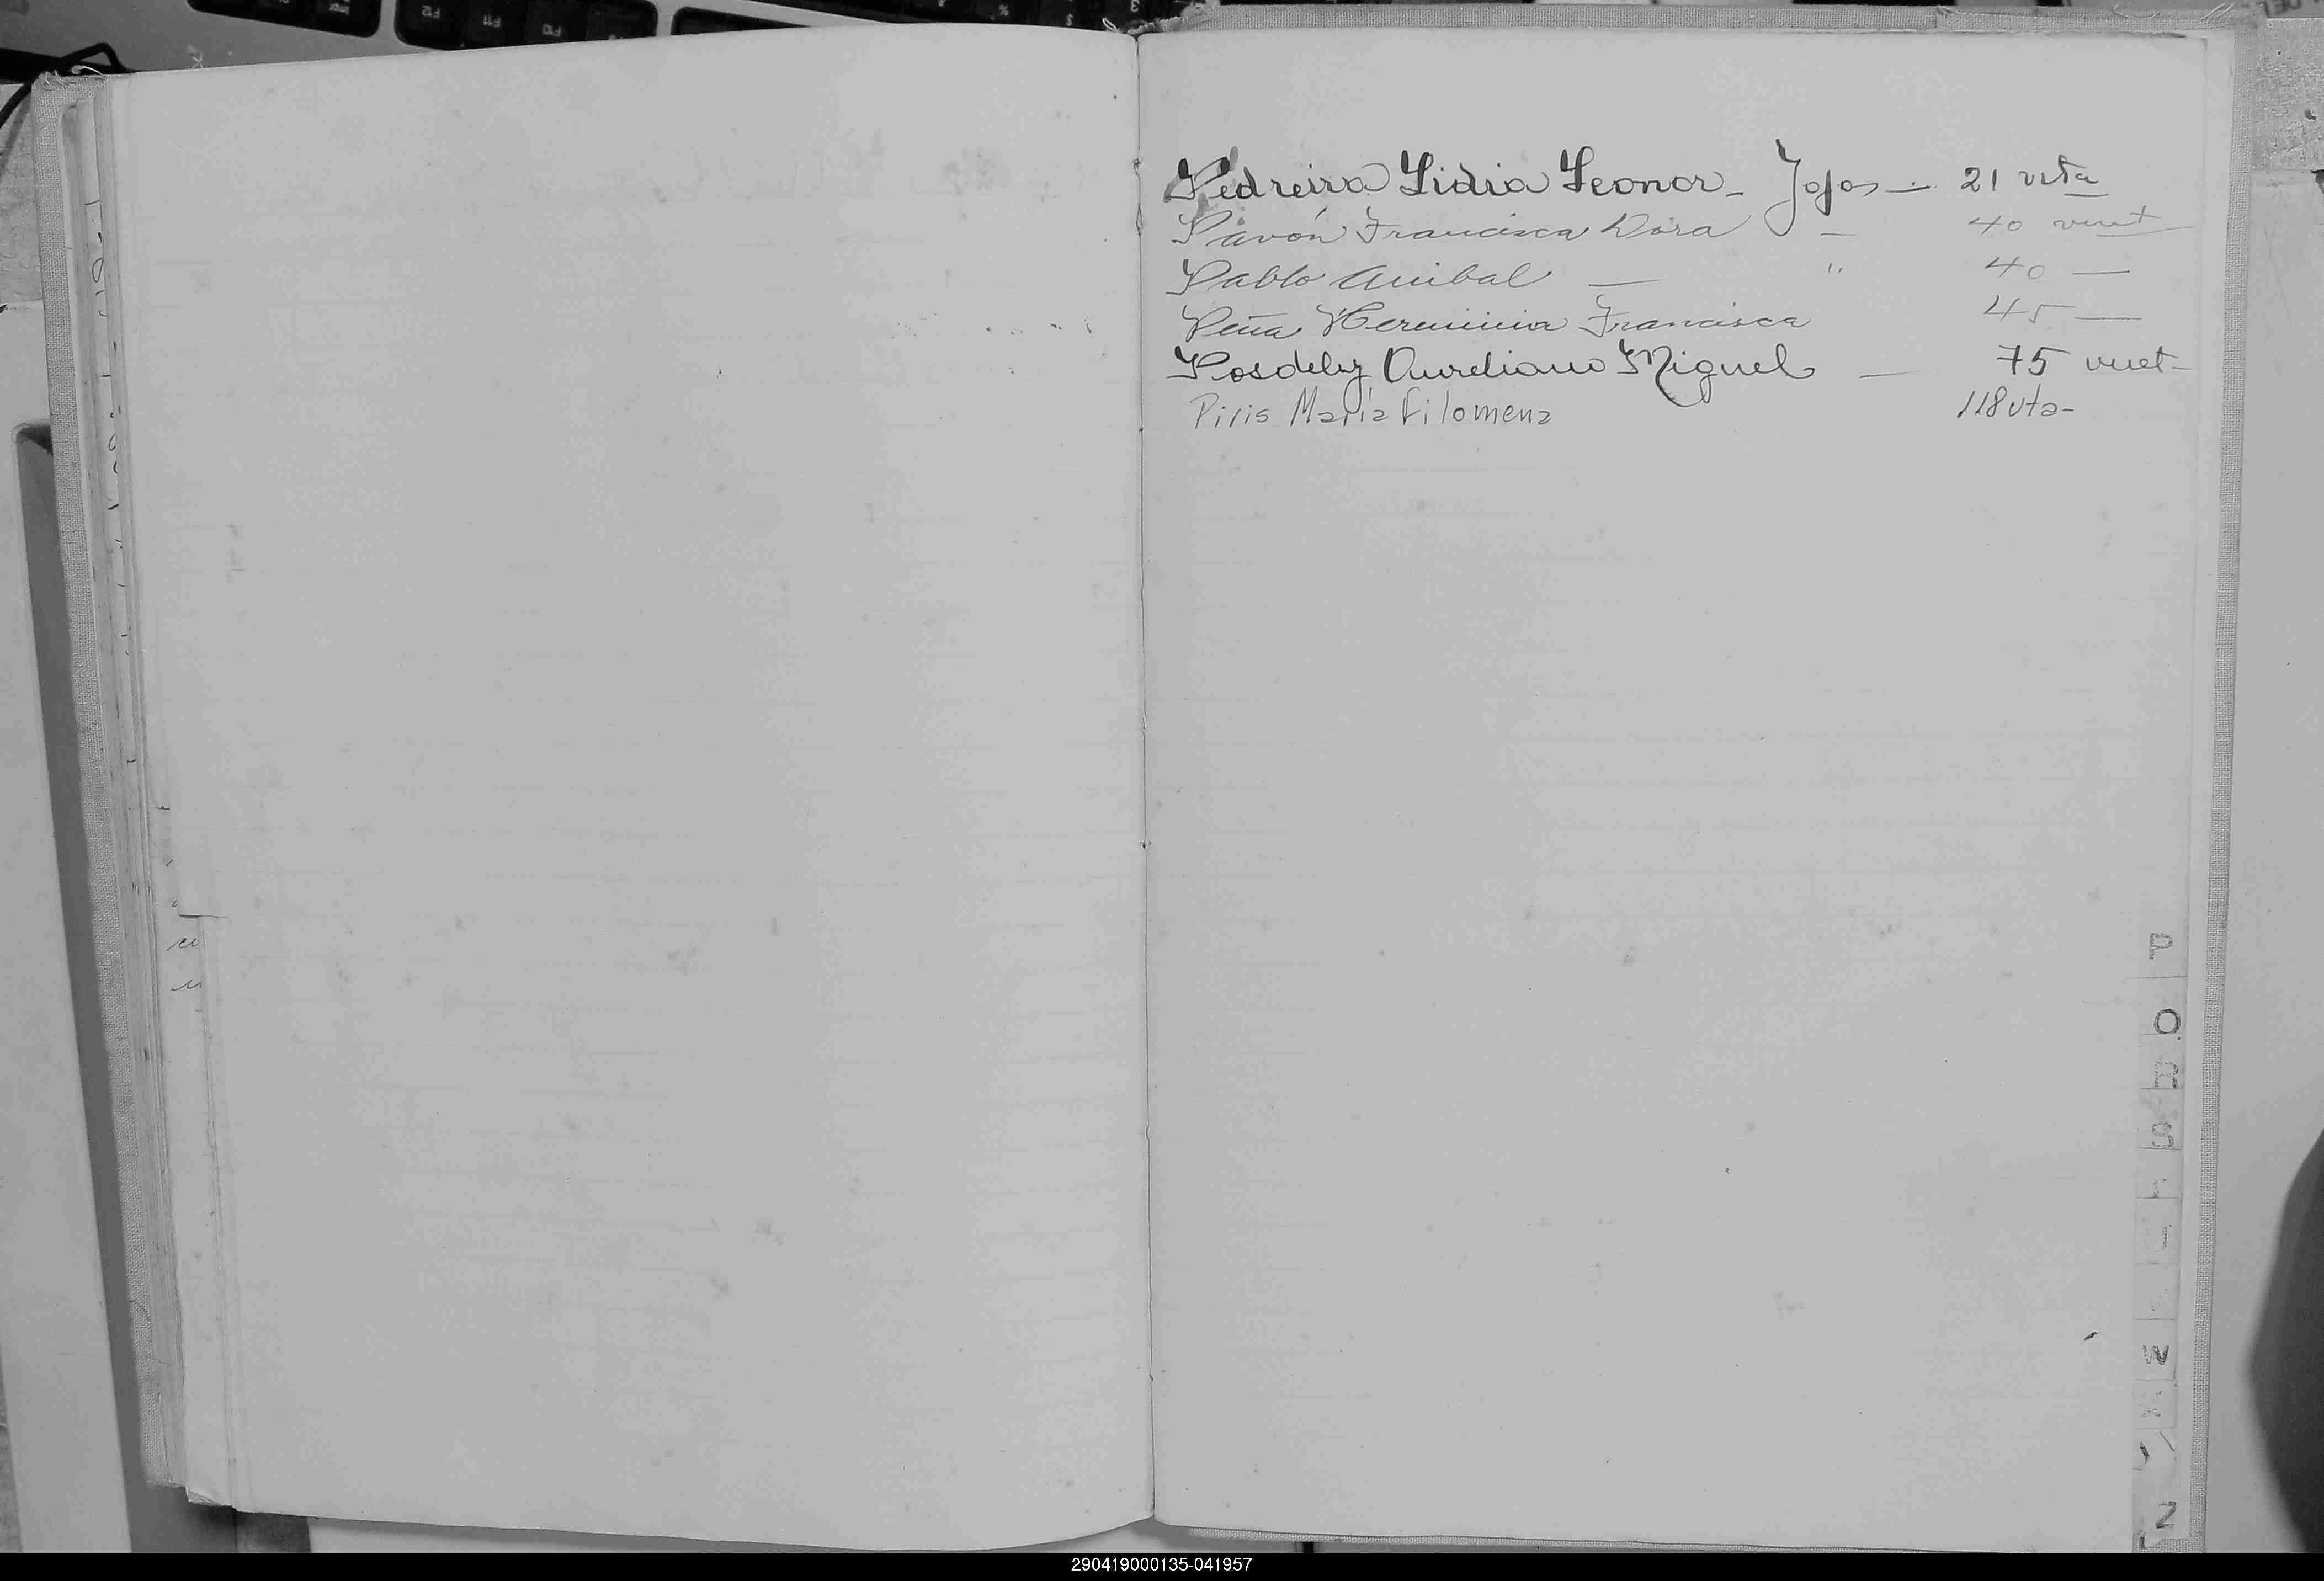 Pedreira Lidia Leonor - Fojas - 21 vlta
Pavón Francisca Dora - 40 vuelt
Pablo Anibal — " 40 —
Peña Herminia Francisca 45 —
Aureliano Miguel — 75 vuet-
Piris María Filomena 118 vta-
P
O
S
W
Z
290419000135-041957